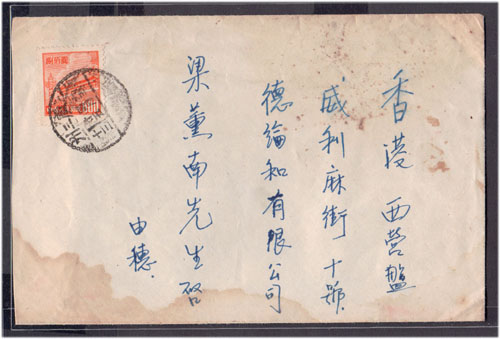 香港西營盤
威利麻街十號
德綸和有限公司
梁薰南先生啓
由穗.
800